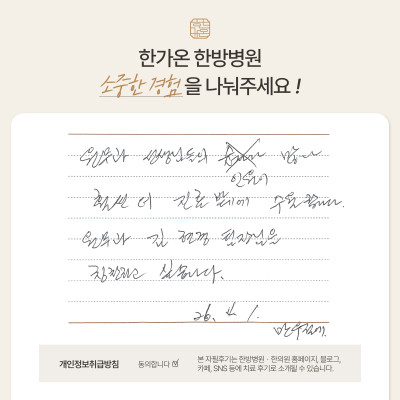 한가온 한방병원
소중한 경험을 나눠주세요!
원무과 선생님들의 많다
인원이
훨씬 더 진료 받기에 수월합니다.
원무과 김 팀장님을
칭찬하고 싶습니다.
26. 4. 1.
개인정보취급방침 동의합니다
본 자필후기는 한방병원 · 한의원 홈페이지, 블로그,
카페, SNS 등에 치료 후기로 소개될 수 있습니다.